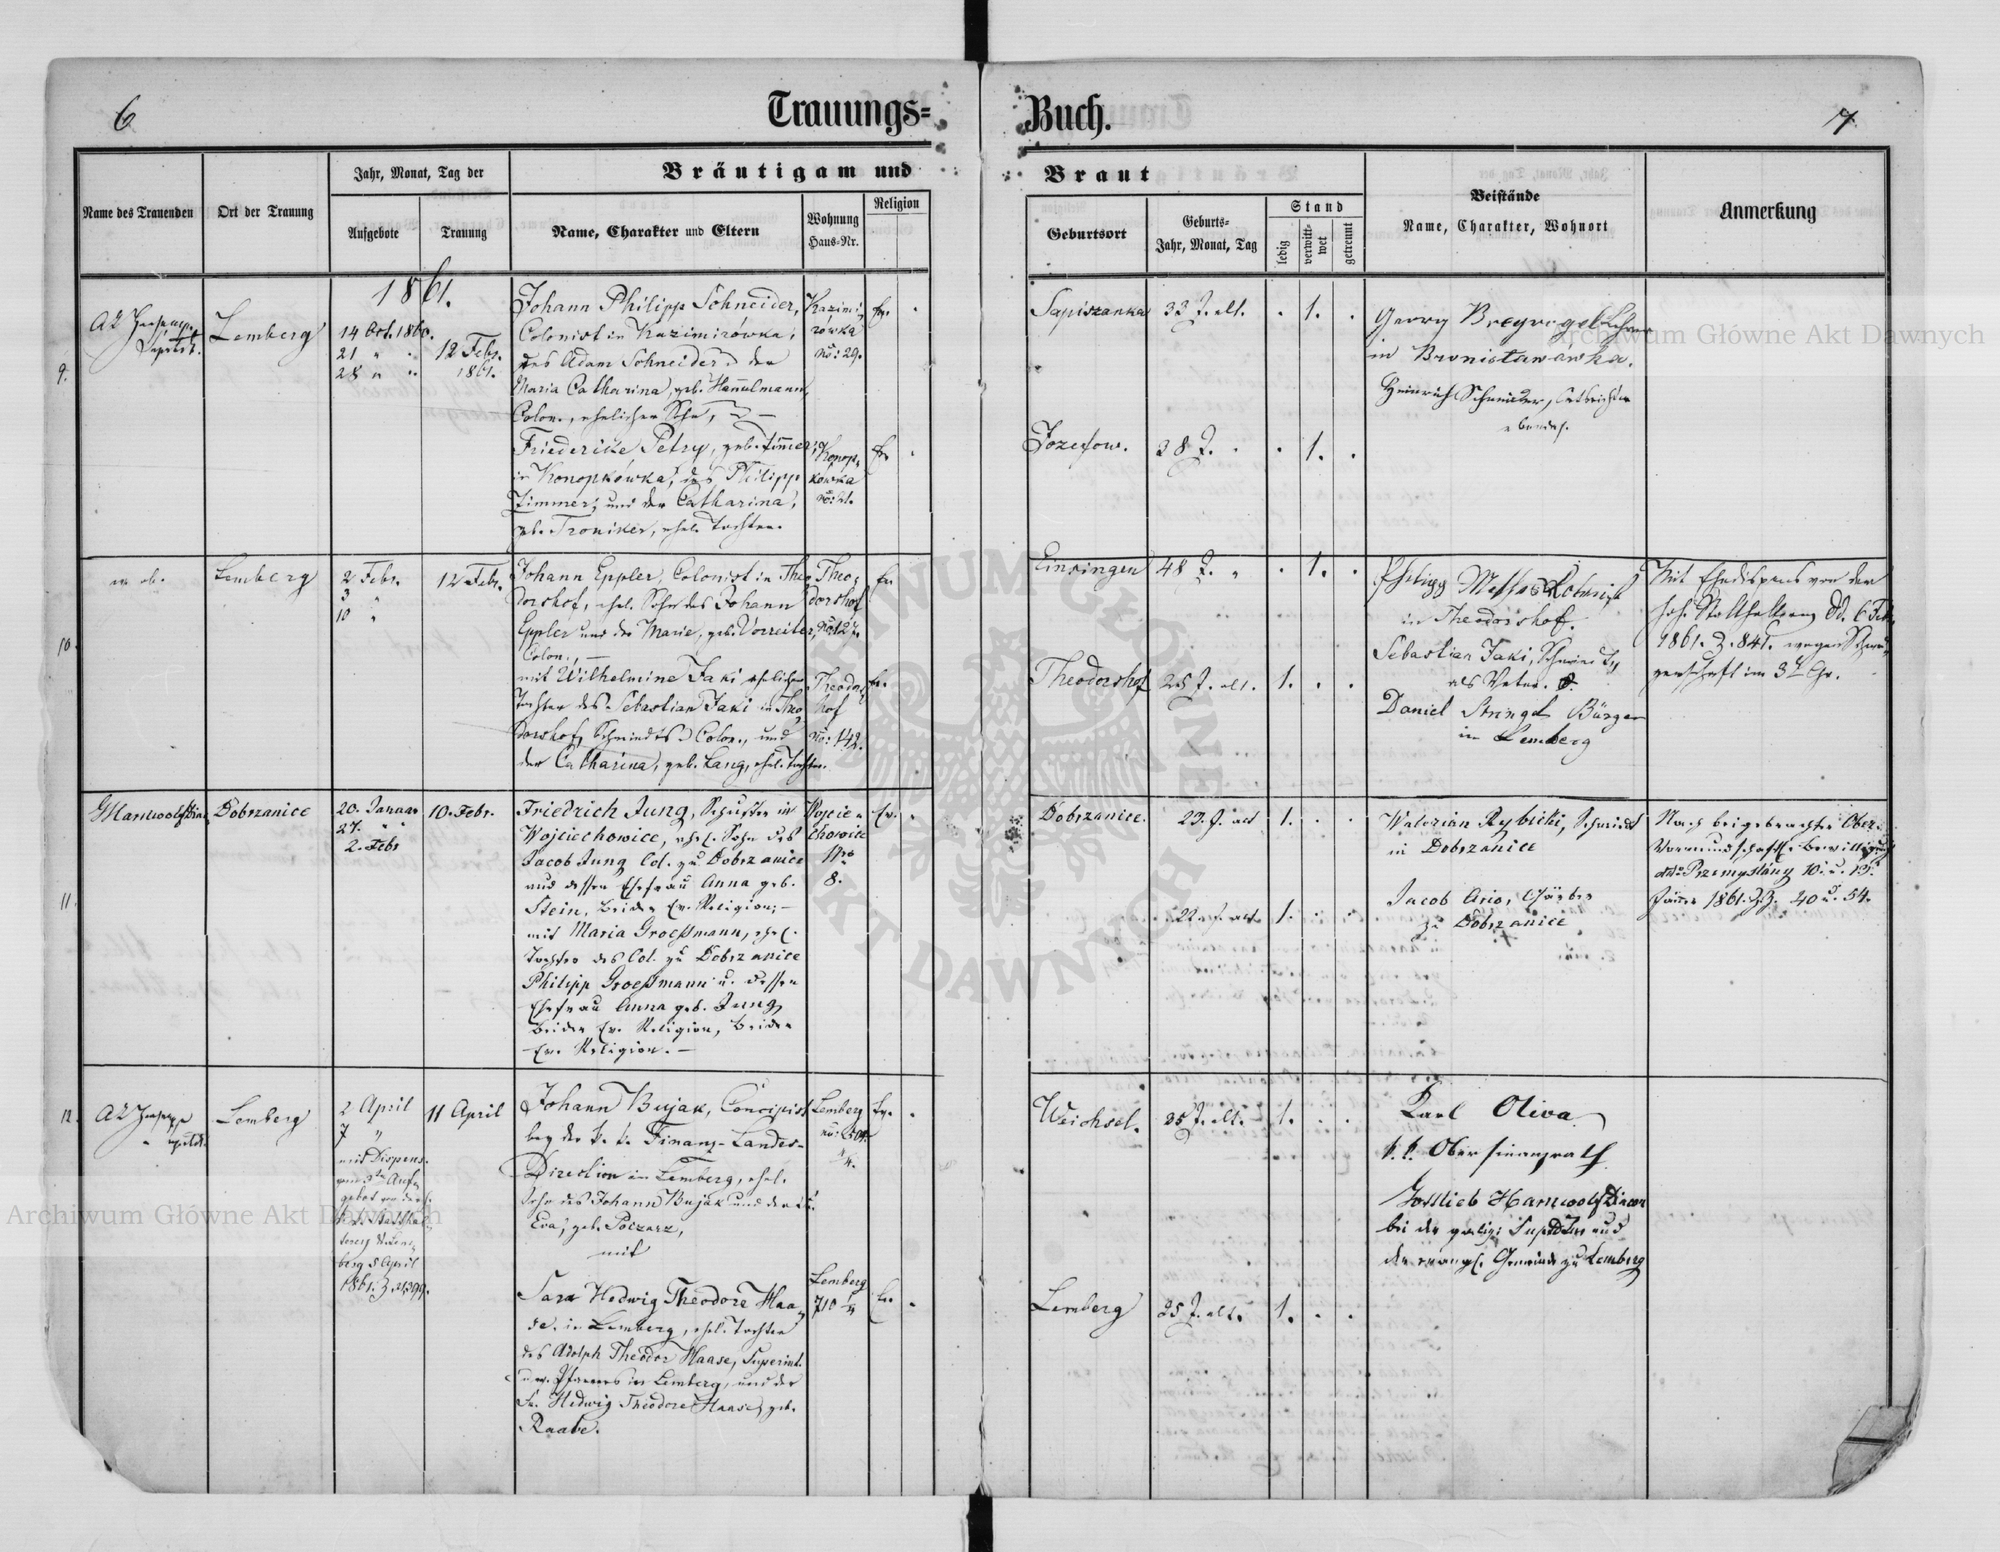 6
Trauungs=
Buch.
7.
Name des Trauenden
Ort der Trauung
Jahr, Monat, Tag der
Aufgebote
Trauung
Bräutigam und
Name, Charakter und Eltern
Wohnung
Haus-Nr.
Religion
Braut
Geburtsort
Geburts-
Jahr, Monat, Tag
Stand
ledig
verwitt-
wet
getrennt
Beistände
Name, Charakter, Wohnort
Anmerkung
1861.
9.
Lemberg
14 Oct. 1860.
21 " "
28 " "
12 Febr.
1861.
Johann Philipp Schneider,
Colonist in Kazimirówka,
des Adam Schneider u der
Maria Catharina, geb. Hanulmann,
Colon., ehelicher Sohn,
Friedericke Petry, geb. Zimmer,
in Konopkówka, des Philipp
Zimmer, und der Catharina,
geb. Troniker, ehel. Tochter.
Kazimi
rówka
No: 29.
Konop,
kówka
Ev.
Ev
Sapiszanka
33 J. alt.
1.
Jozefow.
38 J.
1.
Georg
in Bronislawówka.
Heinrich Schneider, Ortsrichter
ebendas.
10.
Lemberg
2 Febr.
3 "
10 "
12 Febr.
Johann Eppler, Colonist in Theo
dorshof, ehel. Sohn des Johann
Eppler und der Marie, geb. Vorreiter,
Colon.,
mit Wilhelmine Jaki eheliche
Tochter des Sebastian Jaki in Theo
dorshof, Schmied u Colon., und
der Catharina, geb. Lang, ehel. Tochter.
Theo,
dorshof
Theodors
hof
No: 142.
Ev
Ev.
Einsingen
48 J. "
1.
Theodorshof
25 J. alt.
1.
Philipp
in Theodorshof.
Sebastian Jaki, Schmied
als Vater.
Daniel Stringel Bürger
in Lemberg
Mit Ehedispens von der
hoh. Statthalterey dd. 6 Feb.
1861. Z. 841. wegen Schwä
gerschaft im 3t Gr.
11.
Dobrzanice
20. Januar
27. " "
2. Febr
10. Febr.
Friedrich Jung, Schuster in
Wojciechowice, ehel. Sohn des
Jacob Jung Col. zu Dobrzanice
und dessen Ehefrau Anna geb.
Stein, beide Ev. Religion; —
mit Maria Groeßmann, ehel.
Tochter des Col. zu Dobrzanice
Philipp Groeßmann u. dessen
Ehefrau Anna geb. Jung
beide Ev. Religion, beide
Ev. Religion. —
Wojcie
chowice
Nro
8.
Ev.
Dobrzanice.
23. J. alt
1.
22. J. alt
1.
Waleryan Rybicki, Schmied
in Dobrzanice
Jacob Ario, Gärber
zu Dobrzanice
Nach beigebrachter Ober-
Vormundschaftl. Bewilligung
ddo Przemyślany 10. u. 13.
Jänner 1861. Z.Z. 40 u. 54.
12.
Lemberg
2 April
7 "
mit Dispens.
berg 5 April
11 April
Johann Bujak, Concipist
bey der k. k. Finanz-Landes-
Direction in Lemberg, ehel.
Sohn des Johann Bujak und der
Eva, geb. Poczarz,
mit
Sara Hedwig Theodore Haa
se. in Lemberg, ehel. Tochter
des Adolph Theodor Haase, Superint.
u. ev. Pfarrers in Lemberg, und der
Fr. Hedwig Theodore Haase, geb.
Raabe.
Lemberg
Lemberg
710
Ev.
Ev.
Weichsel.
35 J. alt.
1.
Lemberg
25 J. alt.
1.
Karl Oliva
k. k. Oberfinanzrath
Gottlieb Harlwolf Diacon
bei der galiz. Suptdtur und
der evangl. Gemeinde zu Lemberg
Archiwum Główne Akt Dawnych
Archiwum Główne Akt Dawnych
ARCHIWUM GŁÓWNE
AKT DAWNYCH